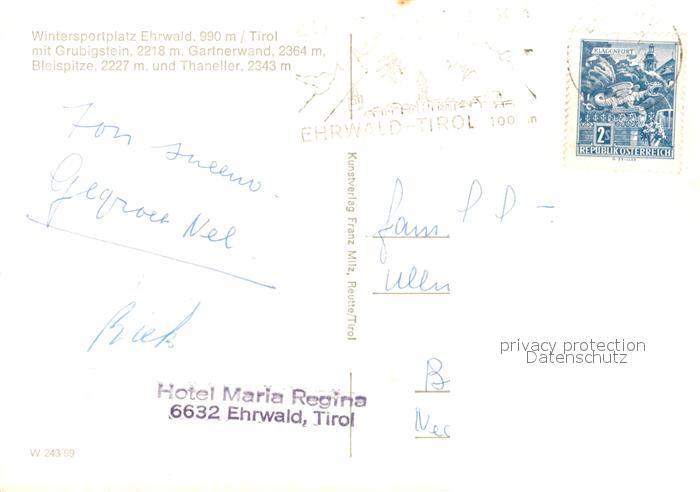 Wintersportplatz Ehrwald, 990 m / Tirol
mit Grubigstein, 2218 m, Gartnerwand, 2364 m,
Bleispitze, 2227 m, und Thaneller, 2343 m
EHRWALD-TIROL
KLAGENFURT
2S
REPUBLIK ÖSTERREICH
Zon sneeuw.
Gegroet Nel
Riek
Kunstverlag Franz Milz, Reutte/Tirol
Fam.
privacy protection
Datenschutz
B
Ned
Hotel Maria Regina
6632 Ehrwald, Tirol
W 243/99